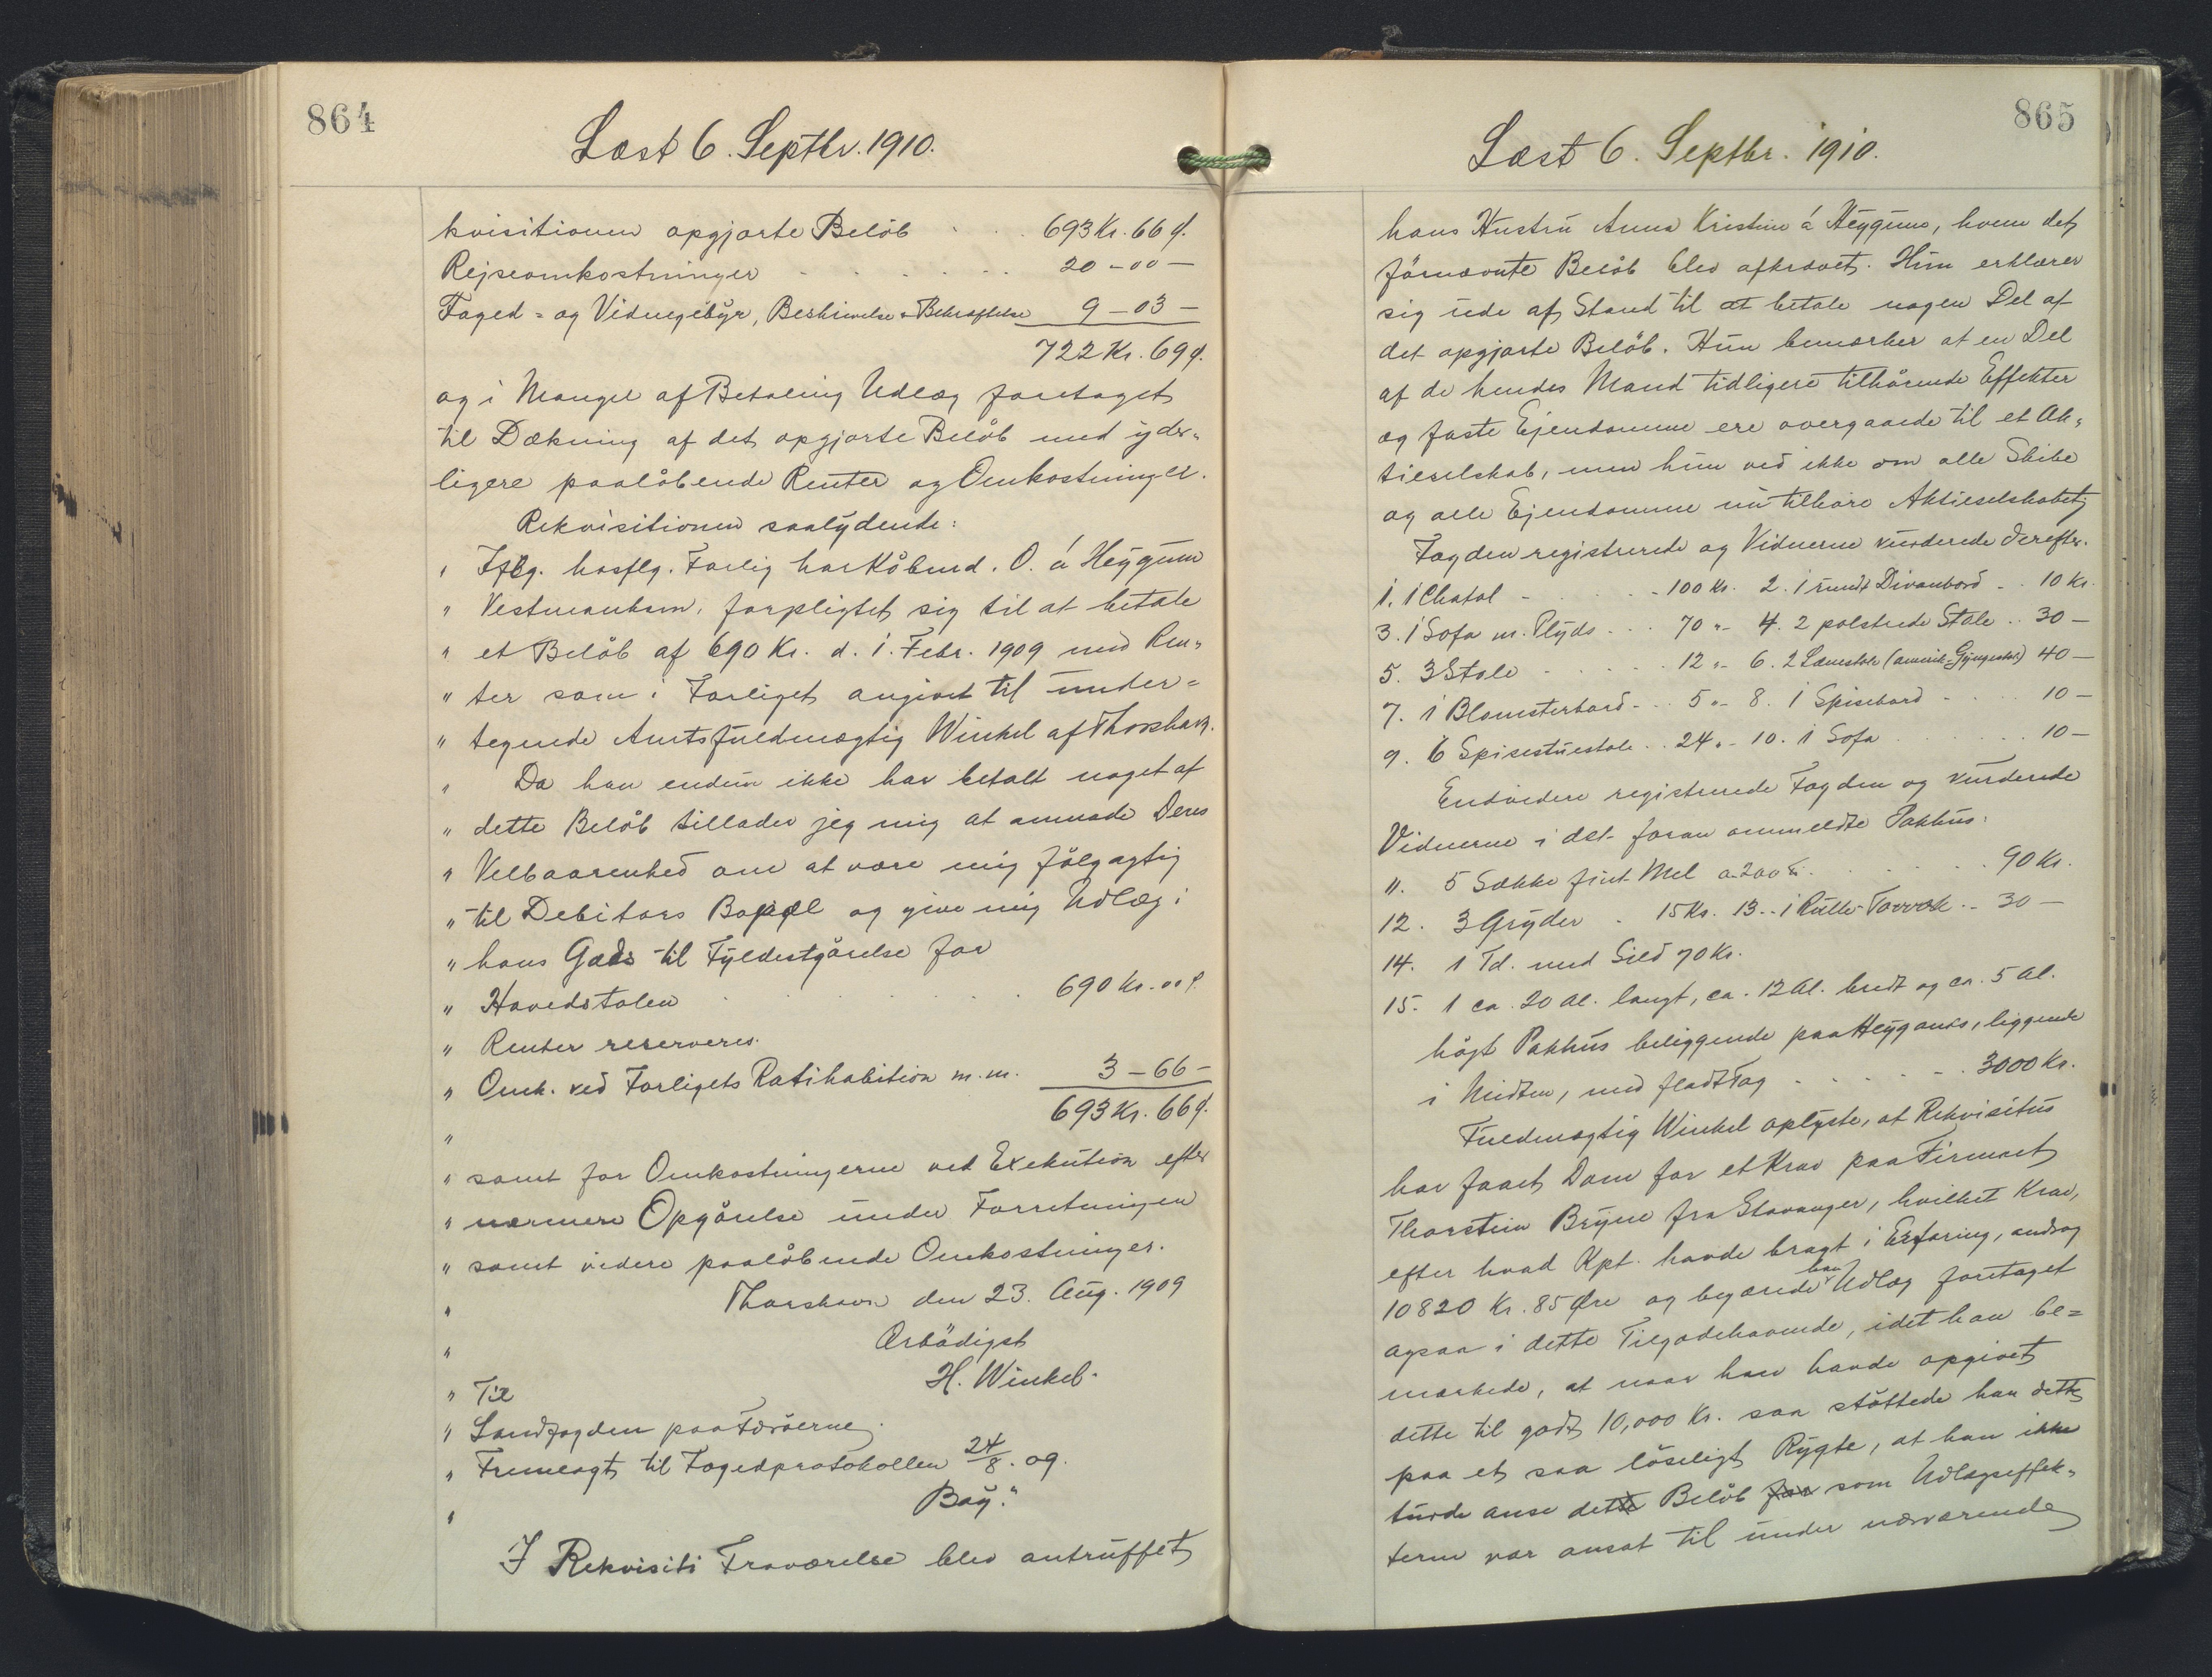 864
Læst 6. Septbr. 1910.
kvisitionen opgjorte Belöb . . . 693 Kr. 66 Ø.
Rejseomkostninger . . . . . . 20 - 00 -
Foged- og Vidnegebyr, Beskrivelse & Bekræftelse 9 - 03 -
722 Kr. 69 Ø.
og i Mangel af Betaling Udlæg foretaget
til Dækning af det opgjorte Belöb med yder-
ligere paalöbende Renter og Omkostninger.
Rekvisitionen saalydende:
" Iflg. hosflg. Forlig har Köbmd. O. á Heygum
" Vestmanhavn, forpligtet sig til at betale
" et Belöb af 690 Kr. d. 1. Febr. 1909 med Ren-
" ter som i Forliget angivet til under-
" tegnede Amtsfuldmægtig Winkel af Thorshavn.
" Da han endnu ikke har betalt noget af
" dette Belöb tillader jeg mig at anmode Deres
" Velbaarenhed om at være mig fölgagtig
" til Debitors Bopæl og give mig Udlæg i
" hans Gods til Fyldestgörelse for
" Hovedstolen . . . . . . . 690 Kr. 00 Ø
" Renter reserveres.
" Omk. ved Forligets Ratihabition m.m. 3 - 66 -
" 693 Kr. 66 Ø.
" samt for Omkostningerne ved Exekution efter
" nærmere Opgörelse under Forretningen
" samt videre paalöbende Omkostninger.
" Thorshavn den 23. Aug. 1909
" Ærbödigst
H. Winkel.
" Til
" Landfogden paa Færöerne.
" Fremlagt til Fogedprotokollen 24/8. 09.
" Bay."
I Rekvisiti Fraværelse blev antruffet
865
Læst 6. Septbr. 1910.
hans Hustru Anna Kristine á Heygum, hvem det
förnævnte Belöb blev afkrævet. Hun erklærer
sig ude af Stand til at betale nogen Del af
det opgjorte Belöb. Hun bemærker at en Del
af de hendes Mand tidligere tilhörende Effekter
og faste Ejendomme ere overgaaede til et Ak-
tieselskab, men hun ved ikke om alle Skibe
og alle Ejendomme nu tilhöre Aktieselskabet
Fogden registrerede og Vidnerne vurderede derefter.
1. 1 Chatol - . . . . - 100 Kr. 2. 1 rundt Divanbord - . 10 Kr.
3. 1 Sofa m. Plyds . . . 70 "- 4. 2 polstrede Stole . . 30 -
5. 3 Stole - . . . . . 12 "- 6. 2 Lænestole (amerik. Gyngestol) 40 -
7. 1 Blomsterbord - . . 5 "- 8. 1 Spisebord - . . . 10 -
9. 6 Spisestuestole . . 24 "- 10. 1 Sofa . . . . . . 10 -
Endvidere registrerede Fogden og vurderede
Vidnerne i det foran ommeldte Pakhus:
11. 5 Sække fint Mel a 200 ℔. . . . . . 90 Kr.
12. 3 Gryder . 15 Kr. 13. . 1 Rulle Tovværk . . 30 -
14. 1 Td. med Sild 70 Kr.
15. 1 ca. 20 Al. langt, ca. 12 Al. bredt og ca. 5 Al.
högt Pakhus beliggende paa liggende
i Midten, med fladt Tag . . . . . . 3000 Kr.
Fuldmægtig Winkel oplyste, at Rekvisitus
har faaet Dom for et Krav paa Firmaet
Thorstein Bryne fra Stavanger, hvilket Krav,
efter hvad Kpt. havde bragt i Erfaring, androg
10820 Kr. 85 Øre og begærede han Udlæg foretaget
ogsaa i dette Tilgodehavende, idet han be-
mærkede, at naar han havde opgivet
dette til godt 10,000 Kr. saa stöttede han dette
paa et saa löseligt Rygte, at han ikke
turde anse dette Belöb for som Udlægseffek-
terne var ansat til under nærværende